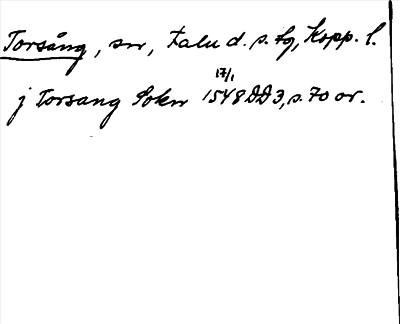 Torsång, sn, Falu d. s. tg, Kopp. l.
17/1
j Torsang Sokn 1548 DD3, s. 70 or.